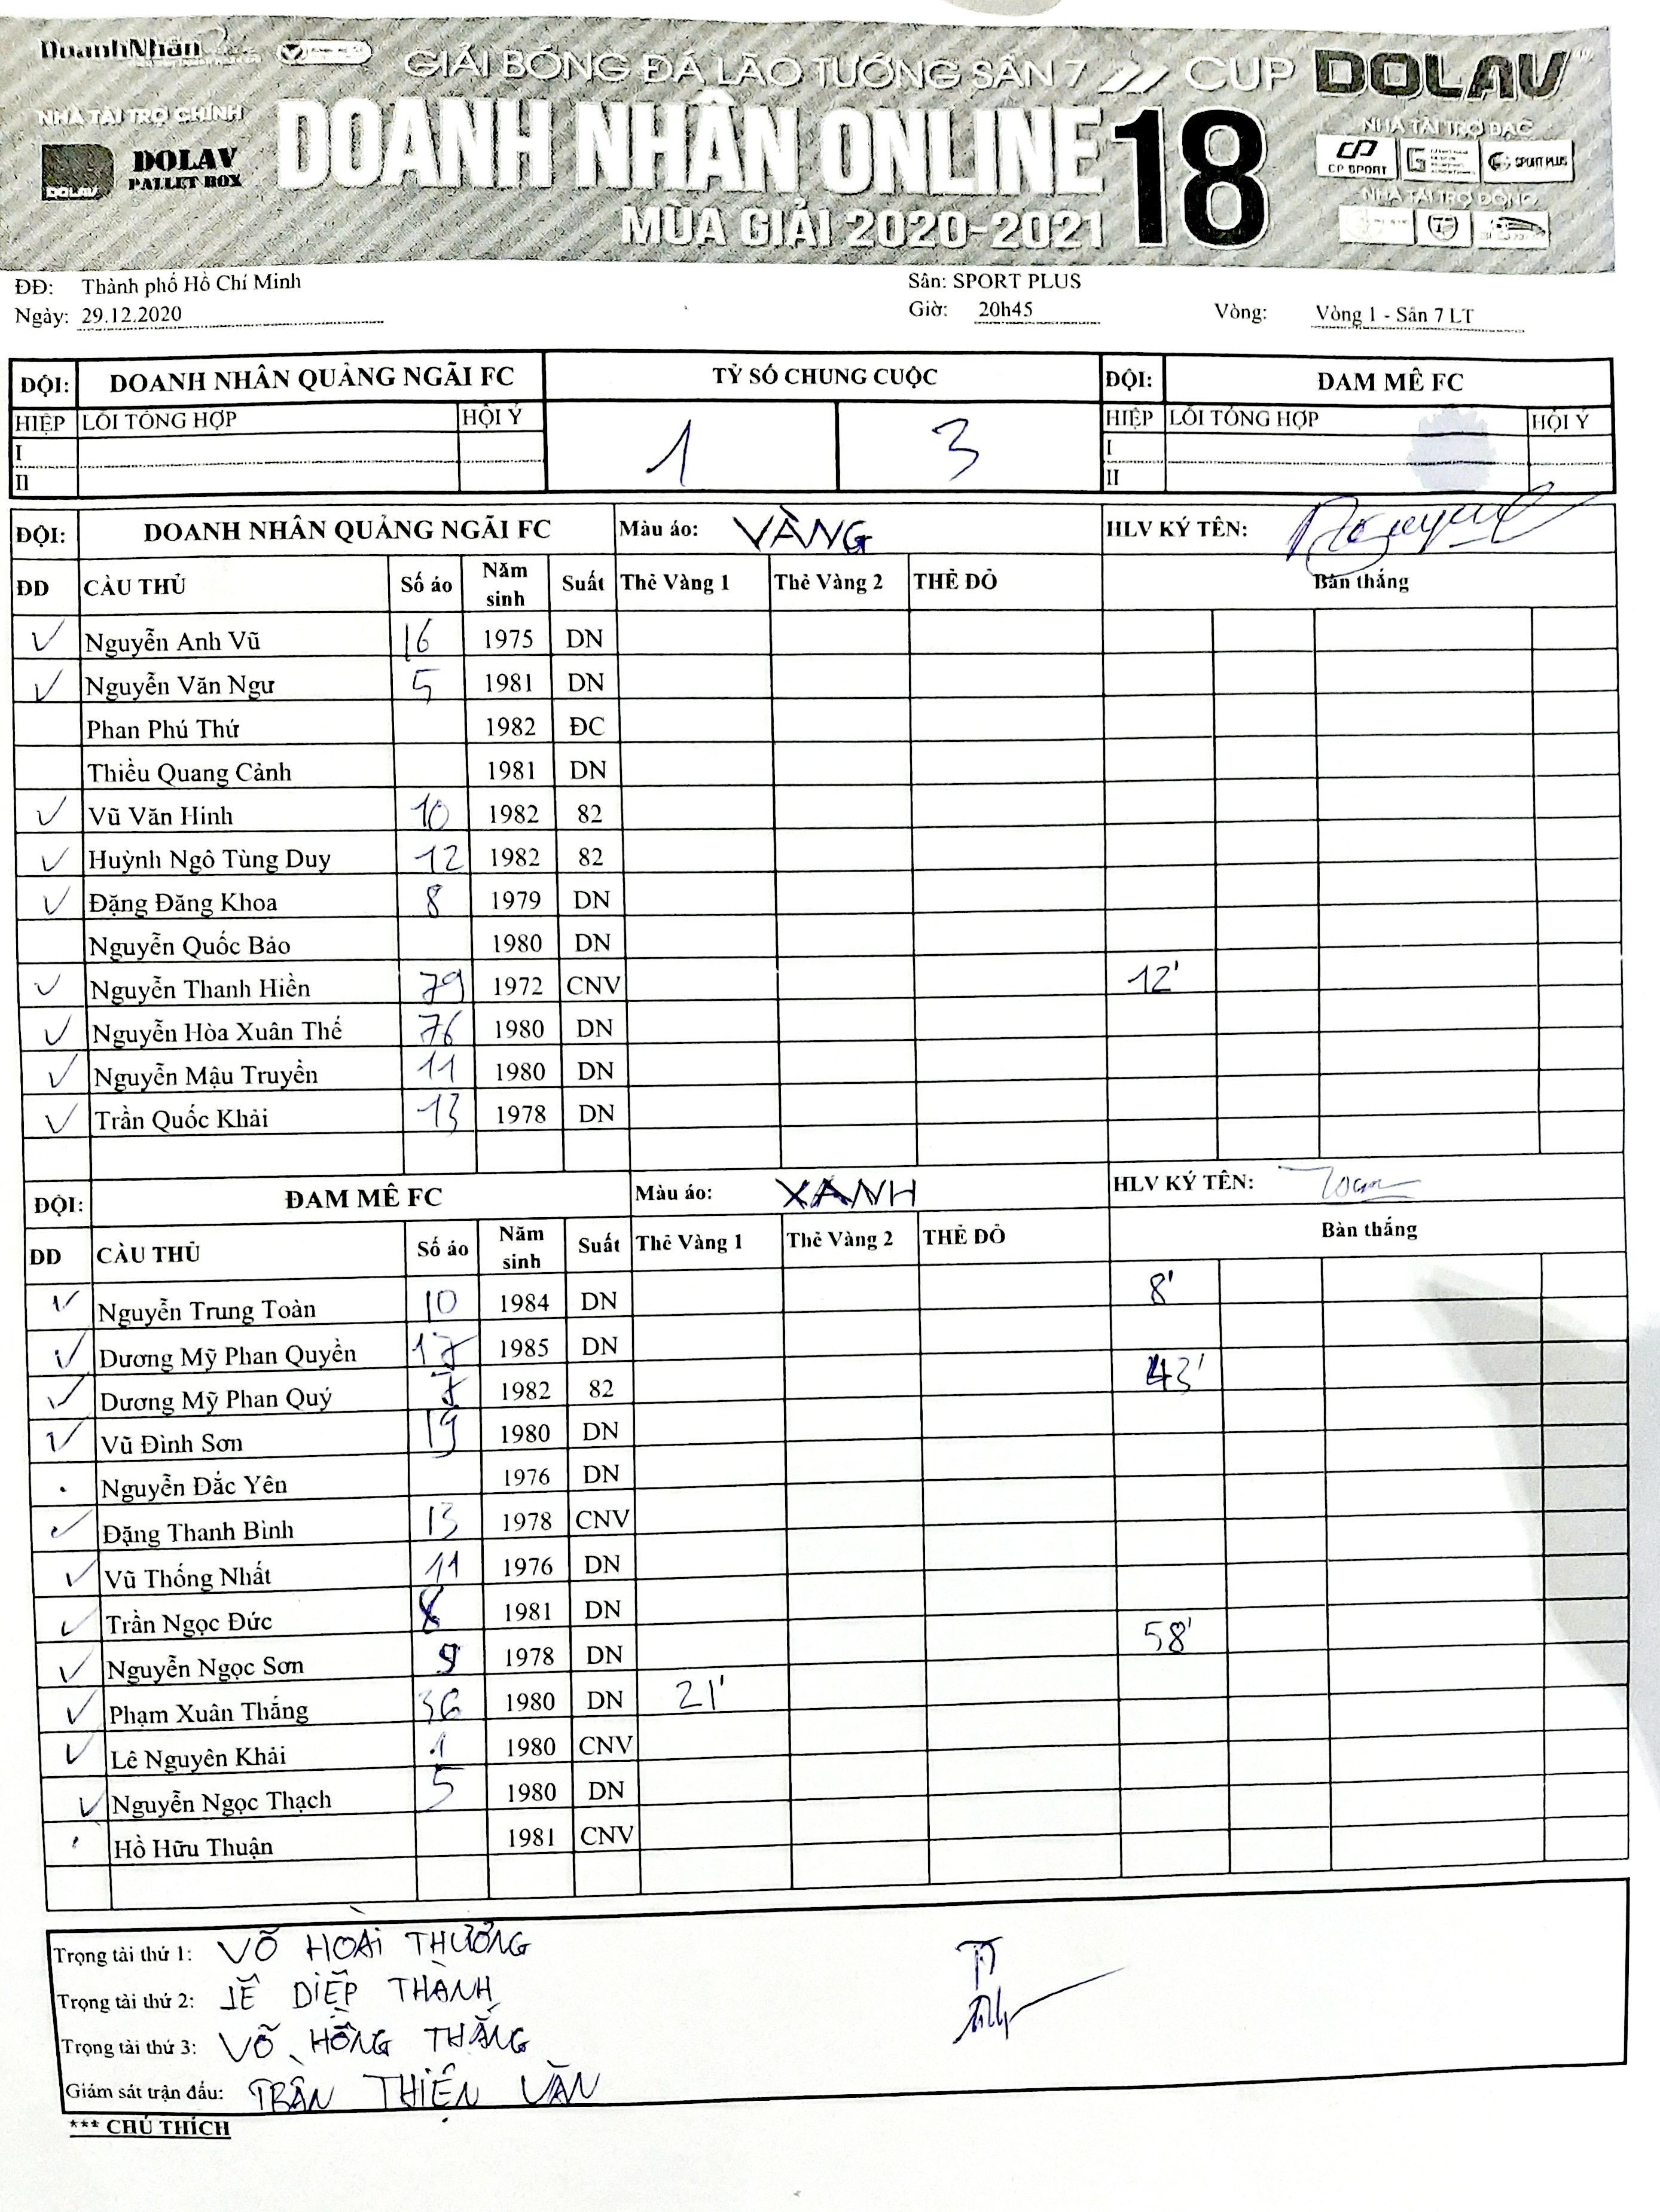 DoanhNhân
GIẢI BÓNG ĐÁ LÃO TƯỚNG SÂN 7 CUP DOLAV
NHÀ TÀI TRỢ CHÍNH
DOLAV
PALLET BOX
DOLAV
DOANH NHÂN ONLINE 18
MÙA GIẢI 2020-2021
NHÀ TÀI TRỢ BẠC
CP SPORT
SPORT PLUS
NHÀ TÀI TRỢ ĐỒNG
ĐĐ: Thành phố Hồ Chí Minh Sân: SPORT PLUS
Ngày: 29.12.2020 Giờ: 20h45 Vòng: Vòng 1 - Sân 7 LT
ĐỘI: DOANH NHÂN QUẢNG NGÃI FC TỶ SỐ CHUNG CUỘC ĐỘI: ĐAM MÊ FC
HIỆP LỖI TỔNG HỢP HỘI Ý 1 3 HIỆP LỖI TỔNG HỢP HỘI Ý
I I
II II
ĐỘI: DOANH NHÂN QUẢNG NGÃI FC Màu áo: VÀNG HLV KÝ TÊN:
ĐD CẦU THỦ Số áo Năm sinh Suất Thẻ Vàng 1 Thẻ Vàng 2 THẺ ĐỎ Bàn thắng
✓ Nguyễn Anh Vũ 16 1975 DN
✓ Nguyễn Văn Ngư 5 1981 DN
Phan Phú Thứ 1982 ĐC
Thiều Quang Cảnh 1981 DN
✓ Vũ Văn Hinh 10 1982 82
✓ Huỳnh Ngô Tùng Duy 12 1982 82
✓ Đặng Đăng Khoa 8 1979 DN
Nguyễn Quốc Bảo 1980 DN
✓ Nguyễn Thanh Hiền 79 1972 CNV 12'
✓ Nguyễn Hòa Xuân Thế 76 1980 DN
✓ Nguyễn Mậu Truyền 11 1980 DN
✓ Trần Quốc Khải 13 1978 DN
ĐỘI: ĐAM MÊ FC Màu áo: XANH HLV KÝ TÊN: Toàn
ĐD CẦU THỦ Số áo Năm sinh Suất Thẻ Vàng 1 Thẻ Vàng 2 THẺ ĐỎ Bàn thắng
✓ Nguyễn Trung Toàn 10 1984 DN 8'
✓ Dương Mỹ Phan Quyền 17 1985 DN
✓ Dương Mỹ Phan Quý 7 1982 82 43'
✓ Vũ Đình Sơn 19 1980 DN
Nguyễn Đắc Yên 1976 DN
✓ Đặng Thanh Bình 13 1978 CNV
✓ Vũ Thống Nhất 11 1976 DN
✓ Trần Ngọc Đức 8 1981 DN
✓ Nguyễn Ngọc Sơn 9 1978 DN 58'
✓ Phạm Xuân Thắng 36 1980 DN 21'
✓ Lê Nguyên Khải 1 1980 CNV
✓ Nguyễn Ngọc Thạch 5 1980 DN
Hồ Hữu Thuận 1981 CNV
Trọng tài thứ 1: VÕ HOÀI THƯƠNG
Trọng tài thứ 2: LÊ DIỆP THÀNH
Trọng tài thứ 3: VÕ HỒNG THẮNG
Giám sát trận đấu: TRẦN THIỆN VĂN
*** CHÚ THÍCH